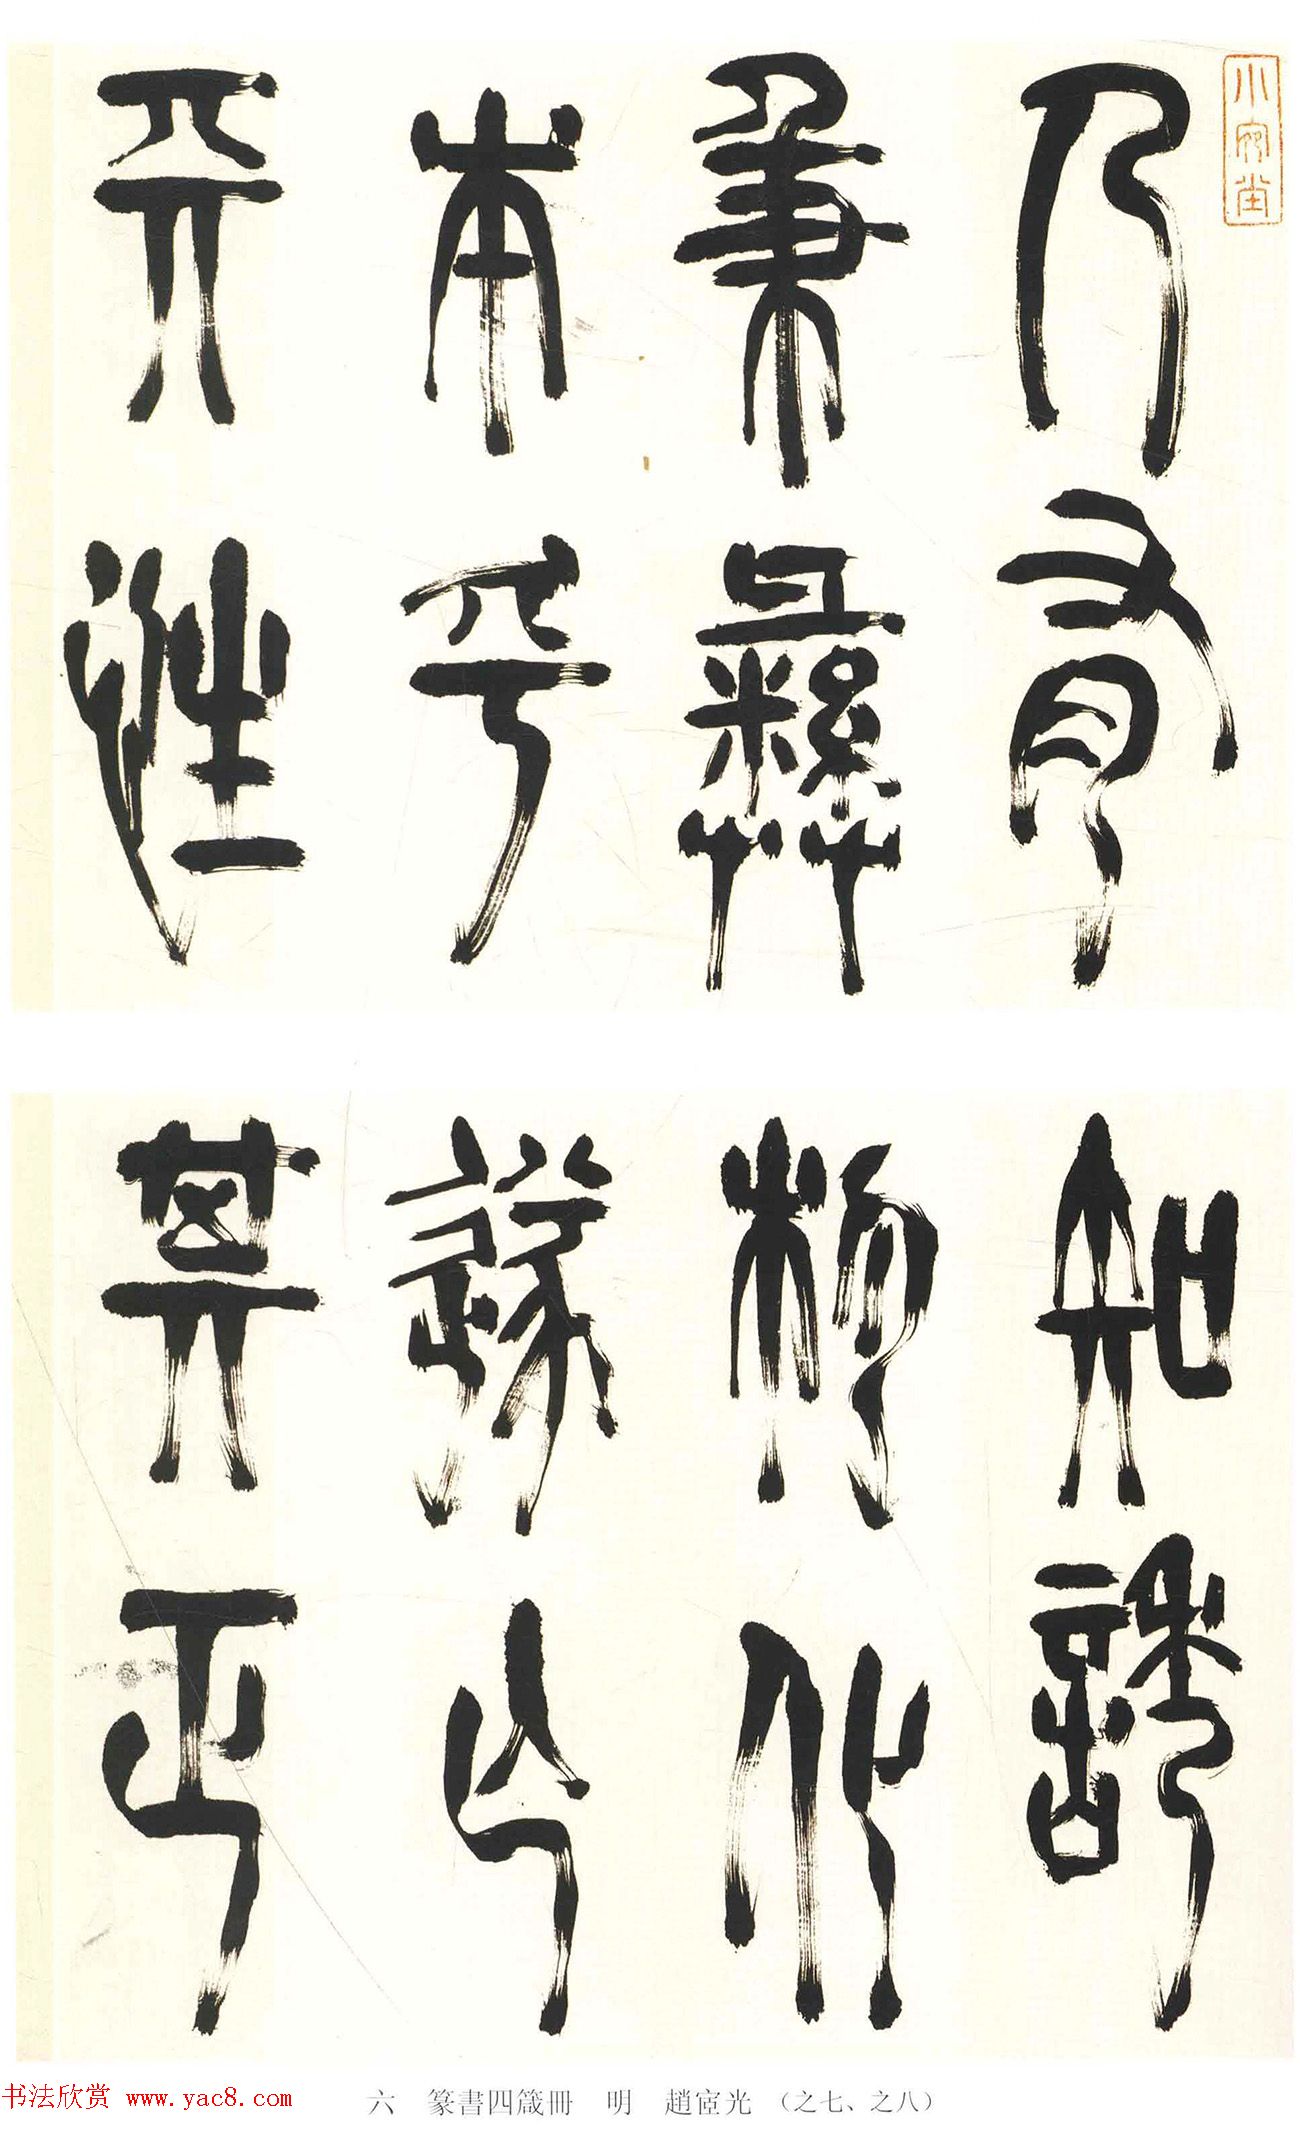 小宛堂
人有
秉彝
本乎
天性
知誘
物化
遂亡
其正
六 篆書四箴冊 明 趙宧光 （之七、之八）
书法欣赏 www.yac8.com